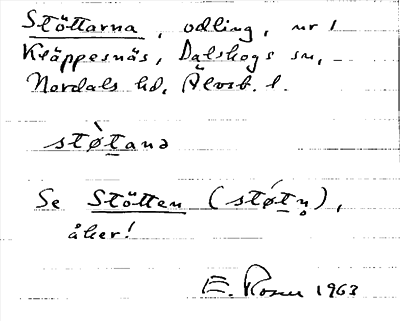 Stöttarna, odling, nr 1
Kläppesnäs, Dalskogs sn,
Nordals hd, Älvsb. l.
stø̀t̲anə
Se Stötten (støt̲n̥),
åker!
E. Rosen 1963